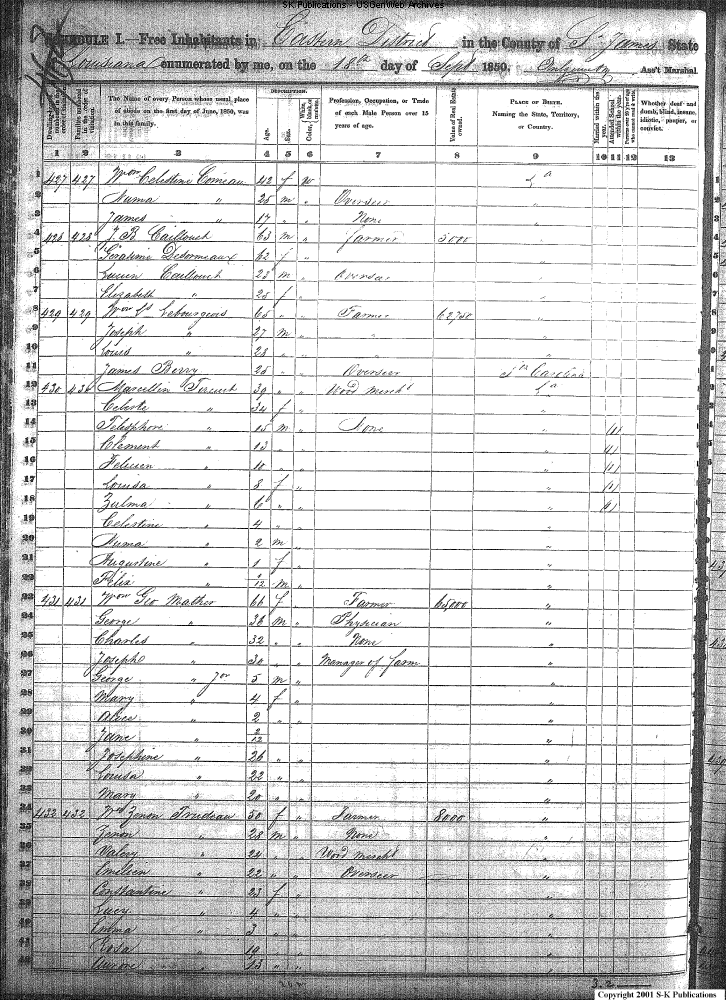 SK Publications - USGenWeb Archives
SCHEDULE I.—Free Inhabitants in Eastern District in the County of St James State
Louisiana enumerated by me, on the 18th day of Sept 1850. Ass't Marshal.
The Name of every Person whose usual place of abode on the first day of June, 1850, was in this family.
DESCRIPTION.
Age.
Sex.
Profession, Occupation, or Trade of each Male Person over 15 years of age.
Value of Real Estate owned.
PLACE OF BIRTH. Naming the State, Territory, or Country.
Married within the year.
Attended School within the year.
Whether deaf and dumb, blind, insane, idiotic, pauper, or convict.
1 2 3 4 5 6 7 8 9 10 11 12 13
427 427 Celestine Comeau 42 f w La
Numa " 25 m " Overseer "
James " 17 " " None "
428 428 J. B. Caillouet 63 m " farmer 5000 "
62 f " "
Lucien Caillouet 23 m " Overseer "
Elizabeth " 25 f " "
429 429 Lebourgeois 65 " " Farmer 62,750 "
Joseph " 27 m " " "
Louis " 23 " " " "
James Berry 25 " " Overseer So Carolina
430 430 Marcellin 39 " " Wood Mercht La
Celeste " 34 f " "
Telesphore " 15 m " None " (1)
Clement " 13 " " " (1)
Felicien " 10 " " " (1)
Louisa " 8 f " " (1)
Zulma " 6 " " " (1)
Celestine " 4 " " "
Numa " 2 m " "
Augustine " 1 f " "
Felix " /12 m " "
431 431 Geo Mather 66 f " Farmer 65,000 "
George " 36 m " Physician "
Charles " 32 " " None "
Joseph " 30 " " Manager of farm "
George " Jor 5 m " "
Mary " 4 f " "
Alice " 2 " " "
Jane " 2/12 "
Josephine " 26 " " "
Louisa " 22 " " "
Mary " 20 " " "
432 432 Wd Zenon Trudeau 50 f " Farmer 8000 "
Zenon " 28 m " None "
Valery " 24 " " Wood Mercht "
Emilien " 22 " " Overseer "
Constantine " 23 f " "
Lucy " 4 " " "
Emma " 3 " " "
Rosa " 19 " " "
Aurore " 13 " " "
Copyright 2001 S-K Publications